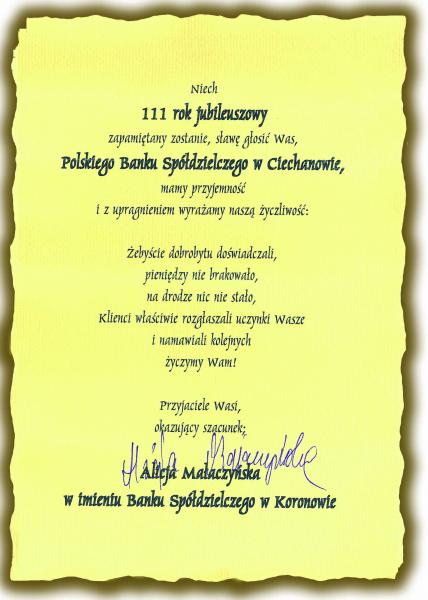 Niech
111 rok jubileuszowy
zapamiętany zostanie, sławę głosić Was,
Polskiego Banku Spółdzielczego w Ciechanowie,
mamy przyjemność
i z upragnieniem wyrażamy naszą życzliwość:
Żebyście dobrobytu doświadczali,
pieniędzy nie brakowało,
na drodze nic nie stało,
Klienci właściwie rozgłaszali uczynki Wasze
i namawiali kolejnych
życzymy Wam!
Przyjaciele Wasi,
okazujący szacunek:
Alicja Małaczyńska
w imieniu Banku Spółdzielczego w Koronowie